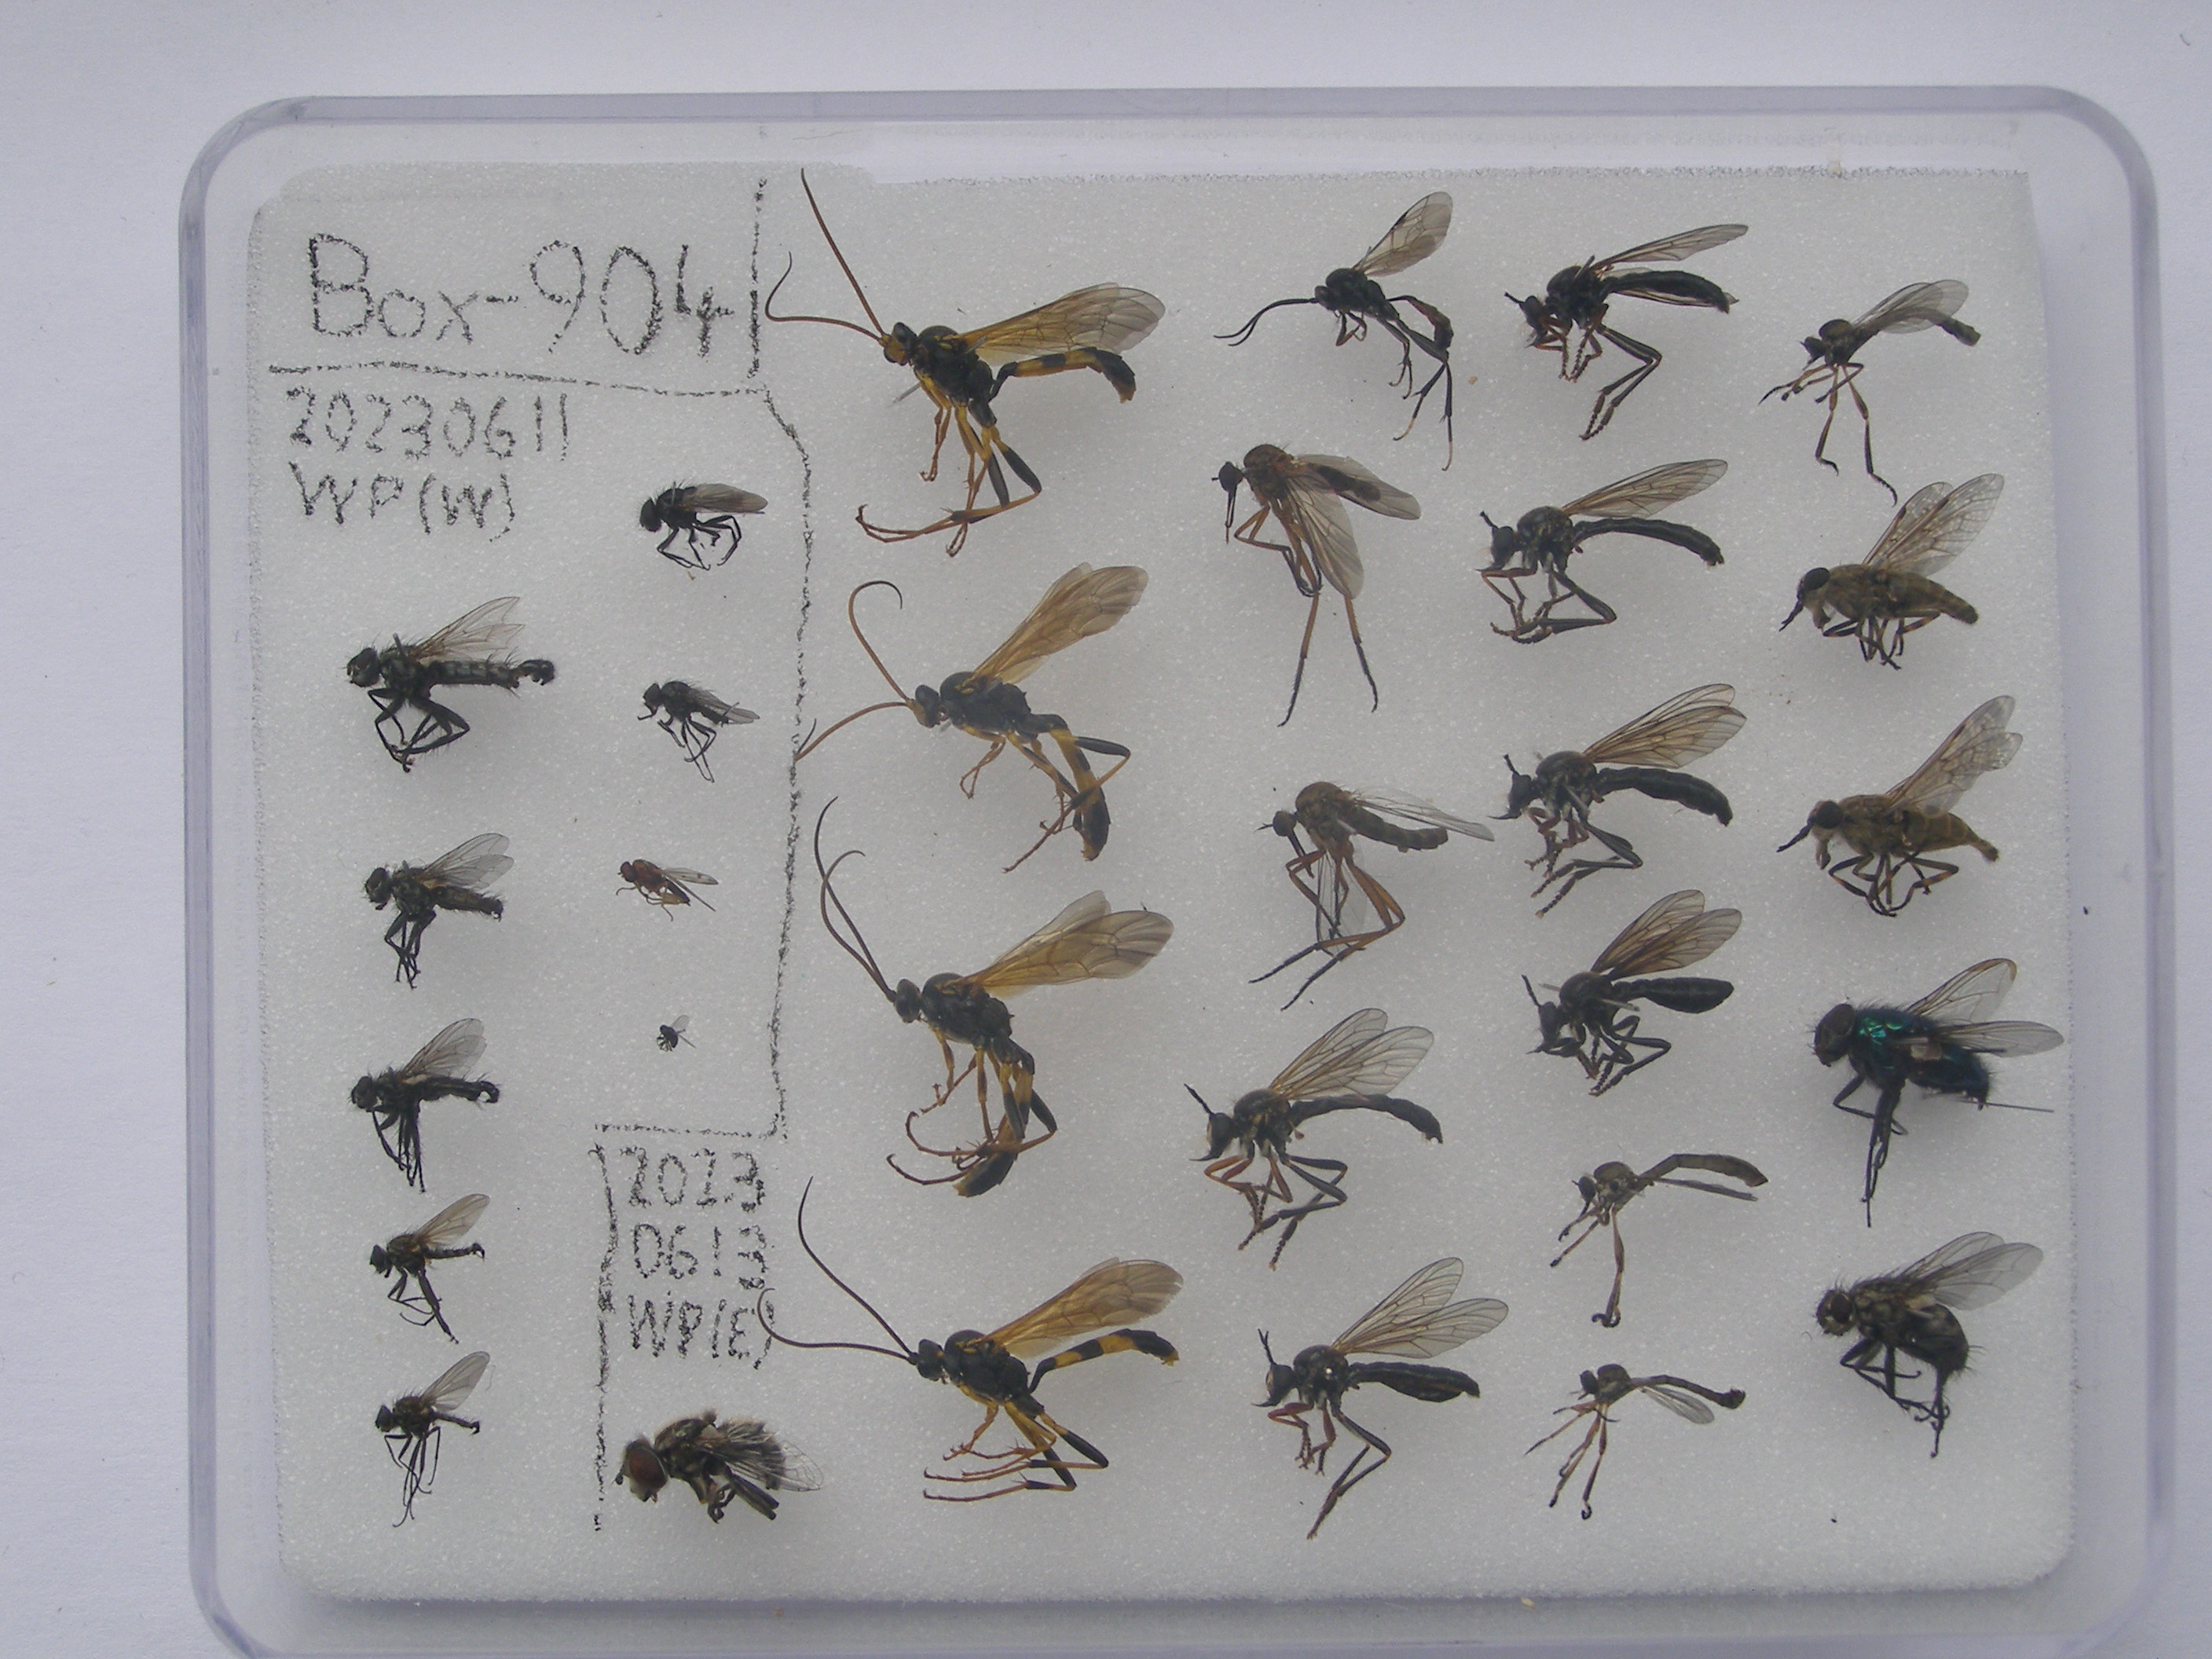 Box-904
20230611
WP(W)
2023
0613
WP(E)